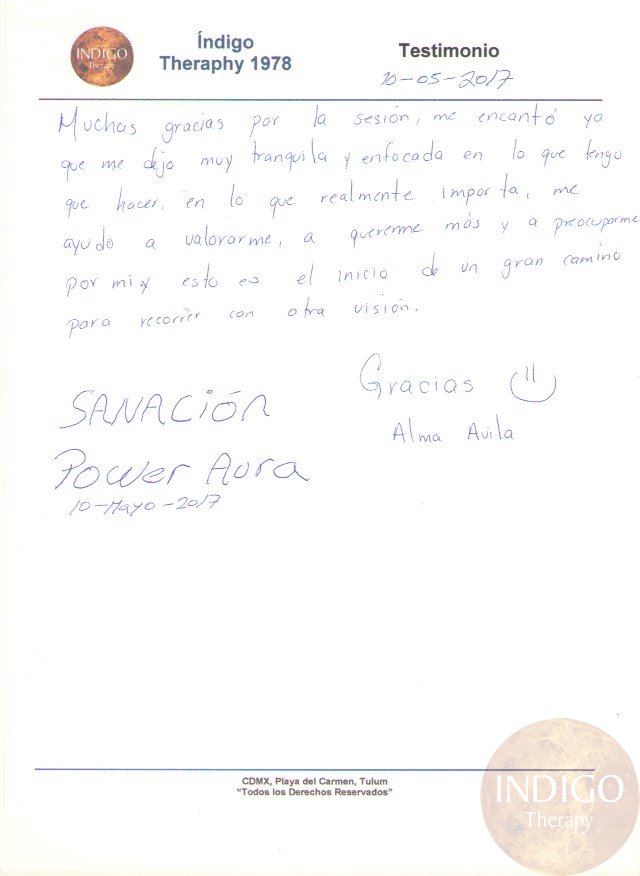 INDIGO
Therapy
Índigo
Theraphy 1978
Testimonio
10-05-2017
Muchas gracias por la sesión, me encantó ya
que me deja muy tranquila y enfocada en lo que tengo
que hacer, en lo que realmente importa, me
ayudo a valorarme, a quererme más y a preocuparme
por mi y esto es el inicio de un gran camino
para recorrer con otra visión.
Gracias
Alma Avila
SANACIÓN
Power Aura
10-Mayo-2017
CDMX, Playa del Carmen, Tulum
“Todos los Derechos Reservados”
INDIGO
Therapy